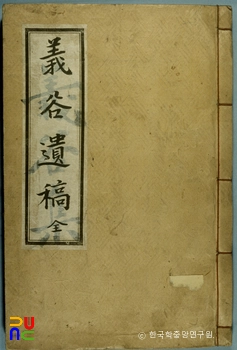 義谷遺稿 全
PUnC
ⓒ 한국학중앙연구원